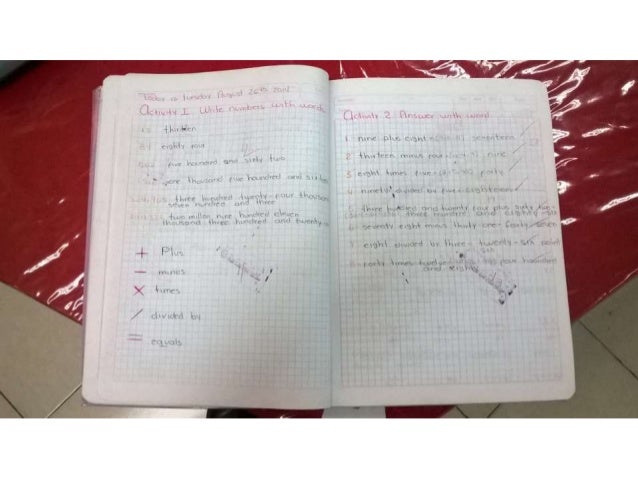 Today is Tuesday August 26
Activity 1 Write numbers with words
13 thirteen
84 eighty four
five hundred and sixty two
thousand five hundred and
three hundred twenty-four thousand
seven hundred and three
two millon nine hundred eleven
thousand three hundred and twenty-
+ Plus
- minus
X times
/ divided by
= equals
Activity 2 Answer with word
1 nine plus eight = seventeen
2 thirteen minus four = nine
3 eight times five = forty
4 ninety divided by five = eighteen
5 three hundred and twenty four plus sixty two =
three hundred and eighty-six
6 seventy eight minus thirty one = forty seven
7 eight divided by three = twenty-six point
six
8 forty times twelve four hundred
and eighty